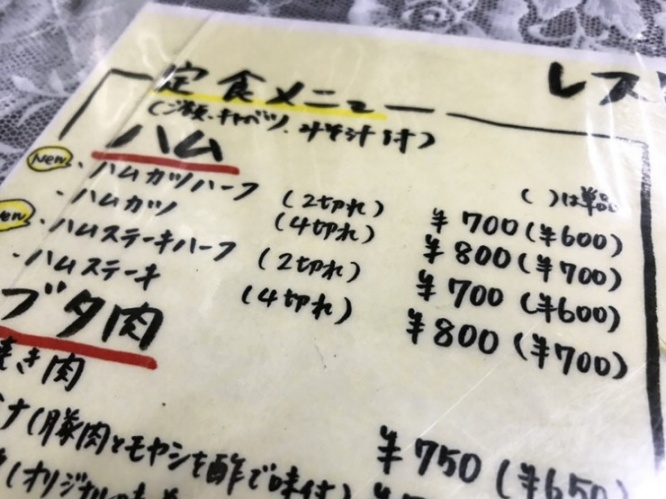 定食メニュー
レス
(ご飯、キャベツ、みそ汁付)
ハム
( )は単品
New ・ハムカツハーフ (2切れ) ¥700(¥600)
・ハムカツ (4切れ) ¥800(¥700)
New ・ハムステーキハーフ (2切れ) ¥700(¥600)
・ハムステーキ (4切れ) ¥800(¥700)
ブタ肉
焼き肉
(豚肉とモヤシを酢で味付) ¥750(¥650
(オリジナルの